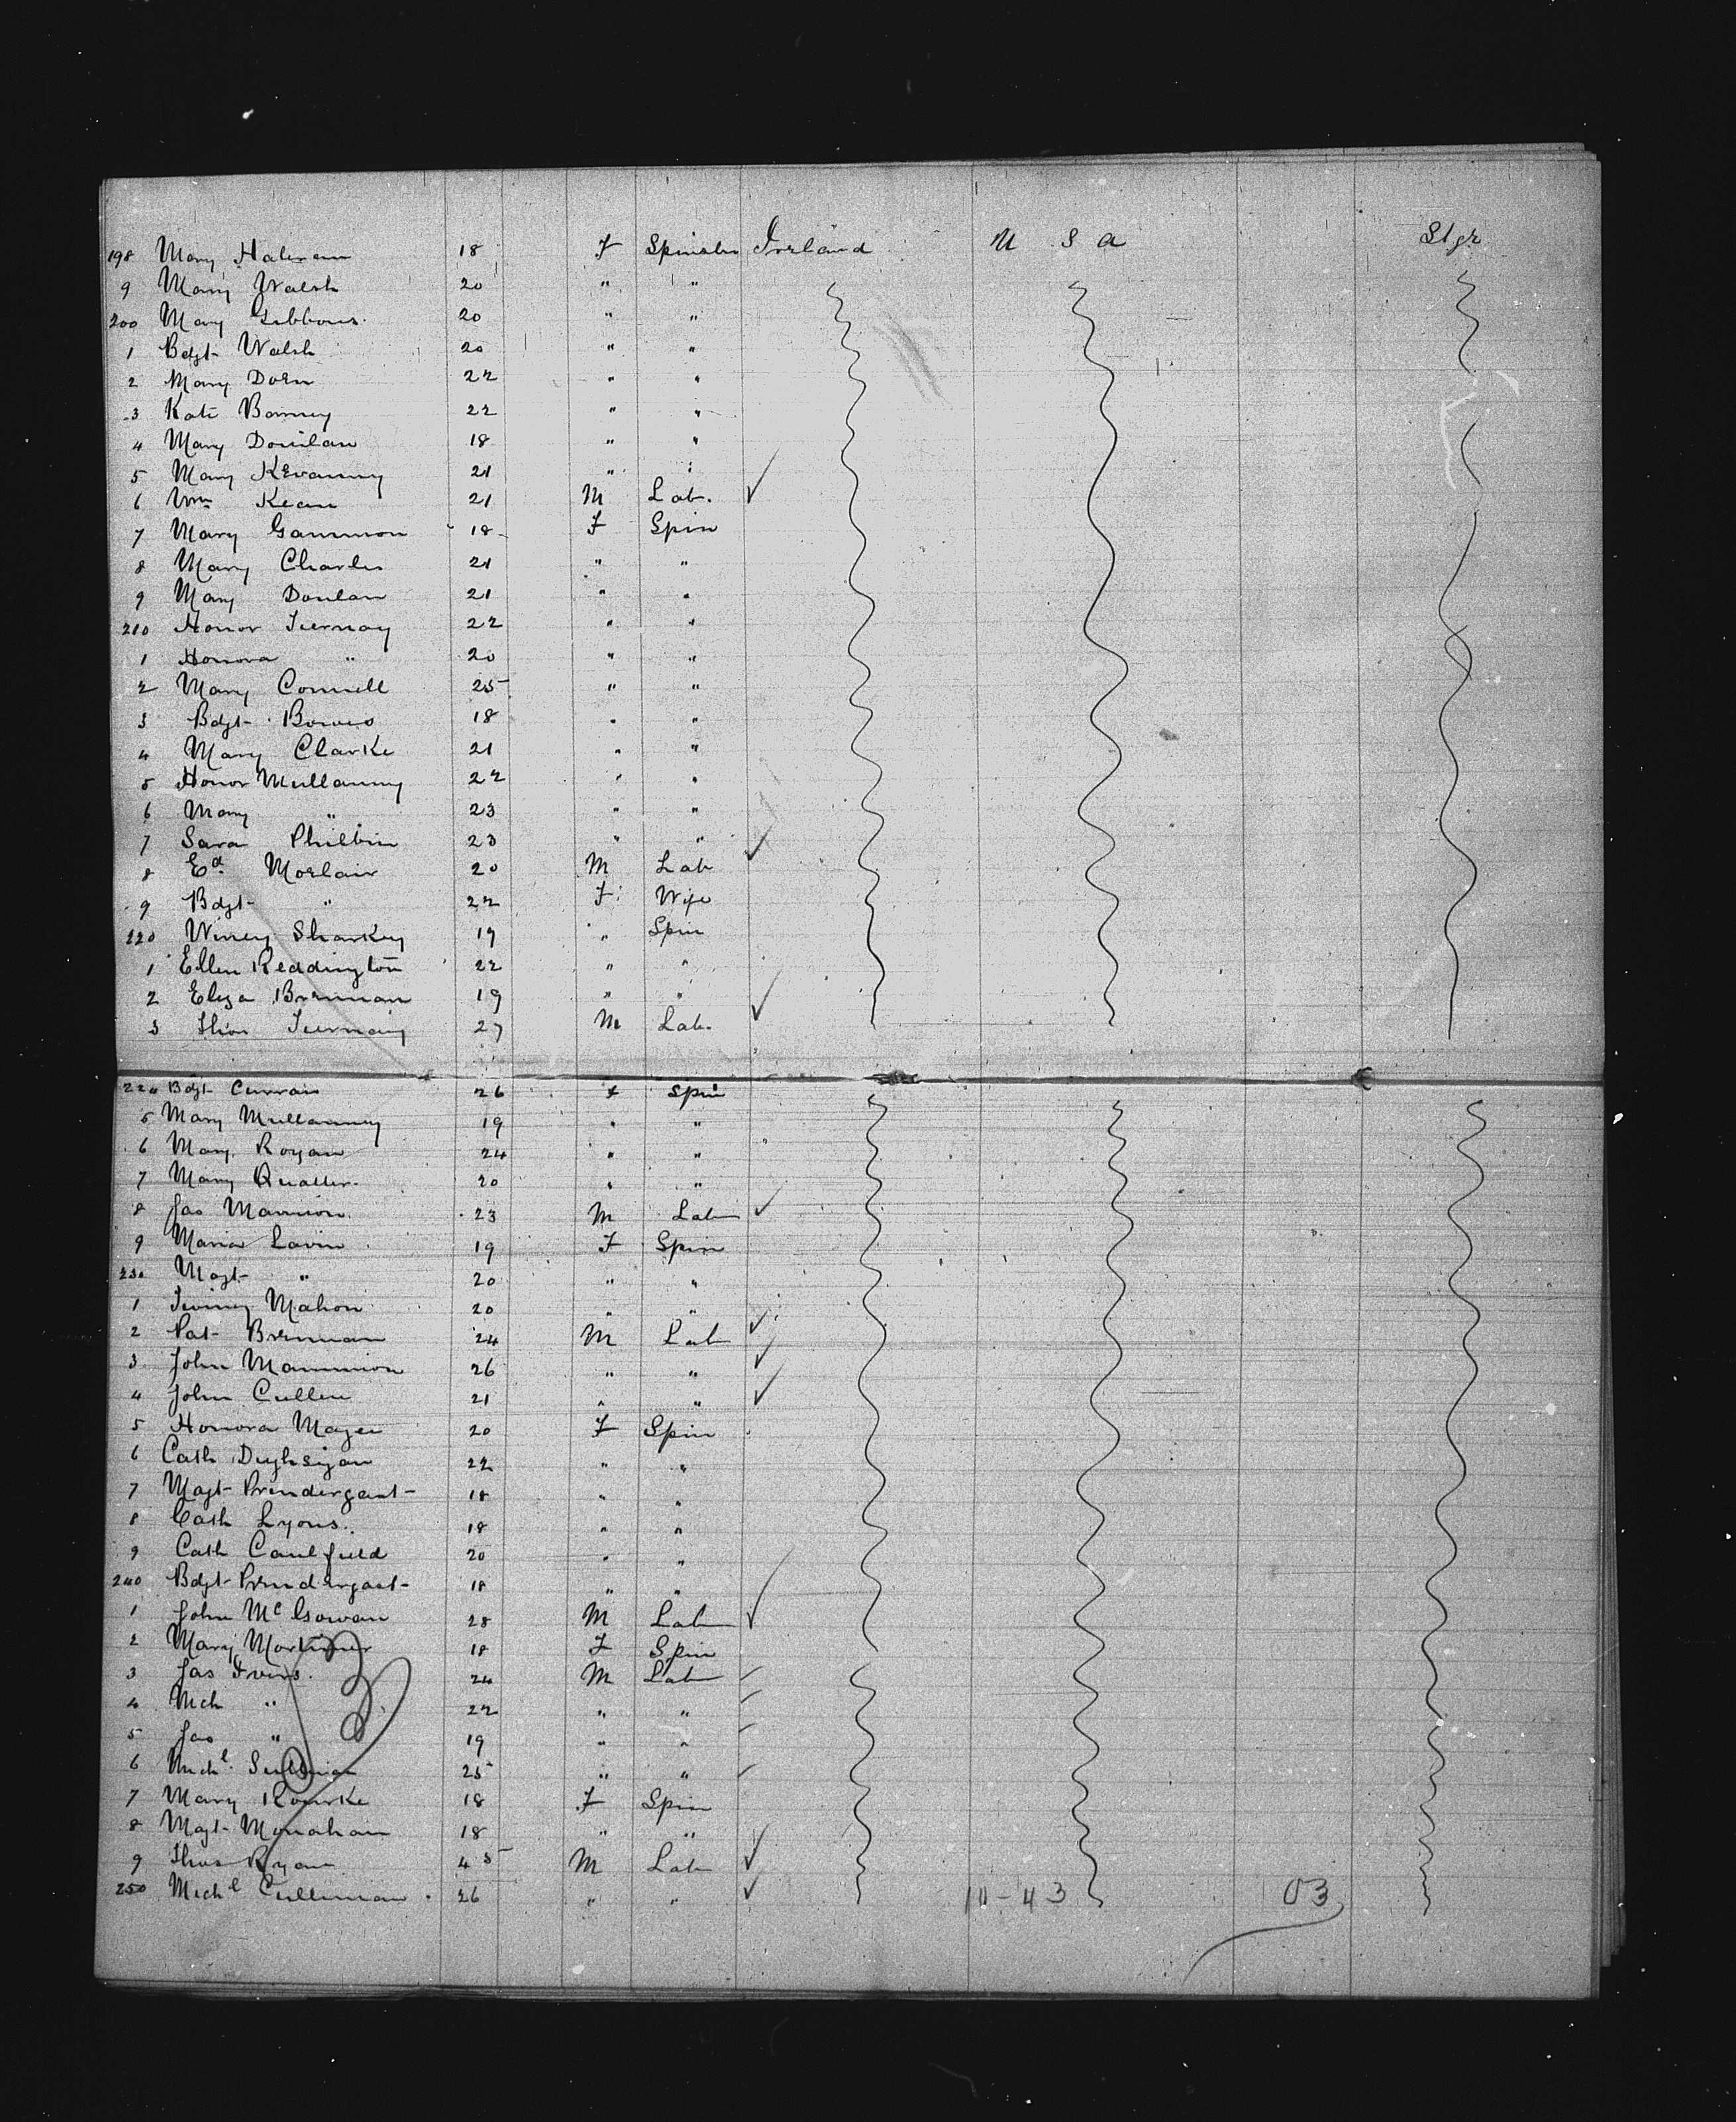 198 Mary Halvean 18 F Spinster Ireland U S A Stgr
9 Mary Walsh 20 " "
200 Mary Gibbons 20 " "
1 Bdgt Walsh 20 " "
2 Mary Doen 22 " "
3 Kate Barney 22 " "
4 Mary Donilan 18 " "
5 Mary Kevanny 21 " "
6 Wm Kean 21 M Lab.
7 Mary Gammon 18 F Spin
8 Mary Charles 21 " "
9 Mary Donlan 21 " "
210 Honor Tiernay 22 " "
1 Honora " 20 " "
2 Mary Connell 25 " "
3 Bdgt Bowes 18 " "
4 Mary Clarke 21 " "
5 Honor Mullanny 22 " "
6 Mary " 23 " "
7 Sara Philbin 23 " "
8 Ed Morlair 20 M Lab
9 Bdgt " 22 F Wife
220 Winey Sharkey 19 " Spin
1 Ellen Reddington 22 " "
2 Eliza Brennan 19 " "
3 Thos Tiernay 27 M Lab.
224 Bdgt Curran 26 F Spin
5 Mary Mullanney 19 " "
6 Mary Rogan 24 " "
7 Mary Qualter 20 " "
8 Jas Mannion 23 M Lab
9 Maria Lavin 19 F Spin
230 Magt " 20 " "
1 Mahon 20 " "
2 Pat Brennan 24 M Lab
3 John Mannion 26 " "
4 John Cullen 21 " "
5 Honora Magee 20 F Spin
6 Cath 22 " "
7 Magt Prendergast 18 " "
8 Cath Lyons 18 " "
9 Cath Caulfield 20 " "
240 Bdgt Prendergast 18 " "
1 John McGowan 28 M Lab
2 Mary Mortimer 18 F Spin
3 Jas Ivers 24 M Lab
4 Mch " 22 " "
5 Jas " 19 " "
6 Michl Sullivan 25 " "
7 Mary Rourke 18 F Spin
8 Magt Monahan 18 " "
9 Thos Ryan 45 M Lab
250 Michl Cullinan 26 " " 10-43 03